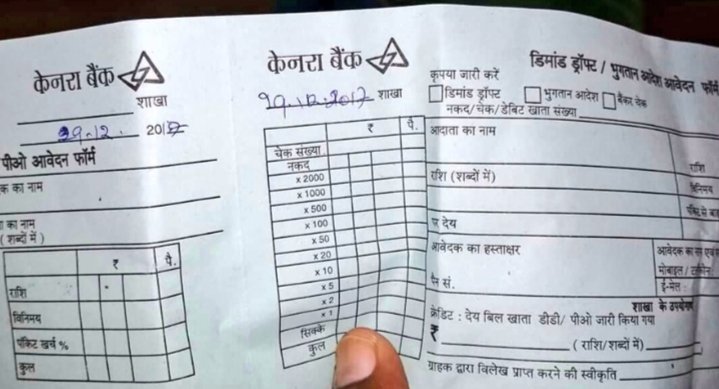 केनरा बैंक
शाखा
29.12. 2017
पीओ आवेदन फॉर्म
क का नाम
का नाम
( शब्दों में )
₹ पै.
राशि
विनिमय
पॉकेट खर्च %
कुल
केनरा बैंक
29.12.2017 शाखा
₹ पै.
चेक संख्या
नकद
x 2000
x 1000
x 500
x 100
x 50
x 20
x 10
x 5
x 2
x 1
सिक्के
कुल
डिमांड ड्रॉफ्ट / भुगतान आदेश आवेदन फॉर्म
कृपया जारी करें
डिमांड ड्रॉफ्ट भुगतान आदेश बैंकर चेक
नकद/चेक/डेबिट खाता संख्या
आदाता का नाम
राशि
रशि (शब्दों में)
विनिमय
पर देय
आवेदक का हस्ताक्षर
आवेदक का
मोबाइल /
पैन सं.
ई-मेल :
शाखा के उपयोगार्थ
क्रेडिट : देय बिल खाता डीडी/ पीओ जारी किया गया
₹ ( राशि/शब्दों में)
ग्राहक द्वारा विलेख प्राप्त करने की स्वीकृति